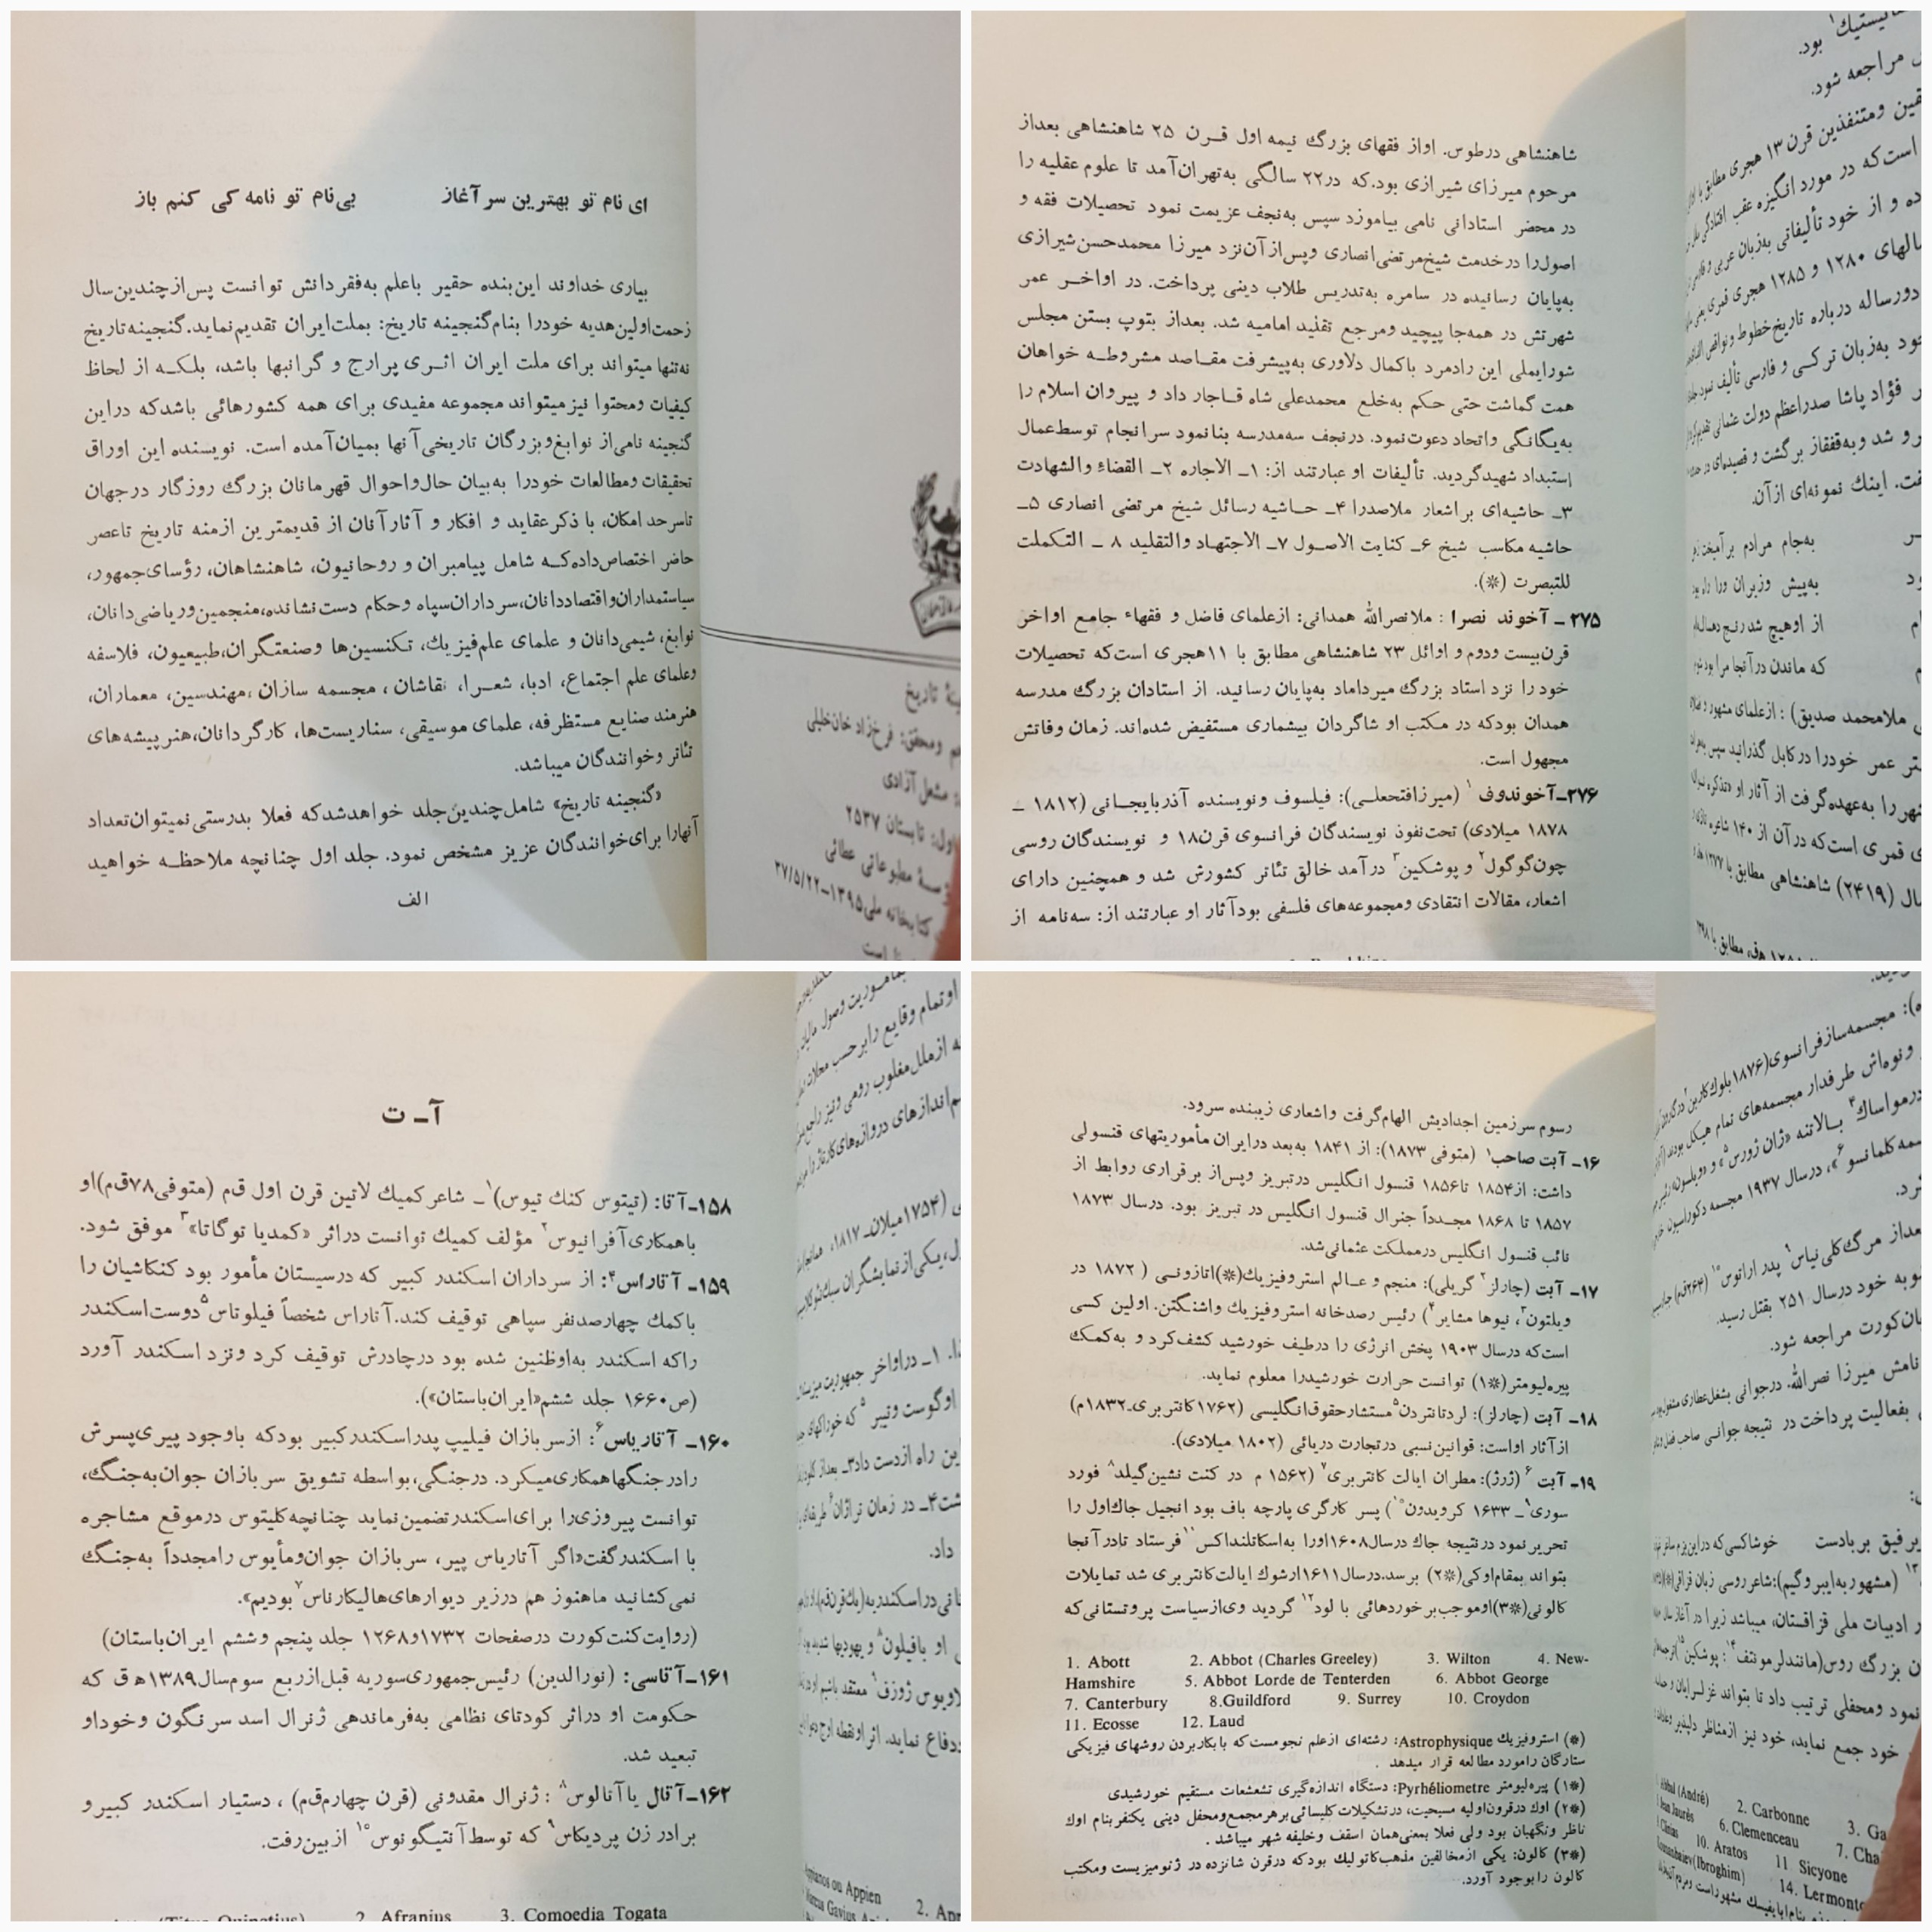 ای نام تو بهترین سر آغاز بی‌نام تو نامه کی کنم باز
بیاری خداوند این‌بنده حقیر باعلم به‌فقردانش توانست پس‌ازچندین‌سال
زحمت‌اولین‌هدیه خودرا بنام‌گنجینه تاریخ: بملت‌ایران تقدیم‌نماید. گنجینه‌تاریخ
نه‌تنها میتواند برای ملت ایران اثـری پرارج و گرانبها باشد، بلکـه از لحاظ
کیفیات ومحتوا نیزمیتواند مجموعه مفیدی برای همه کشورهائی باشدکه دراین
گنجینه نامی‌از نوابغ‌وبزرگان تاریخی‌آنها بمیان‌آمده است. نویسنده این اوراق
تحقیقات ومطالعات خودرا به‌بیان حال‌واحوال قهرمانان بزرگ روزگار درجهان
تاسرحد امکان، با ذکرعقاید و افکار و آثارآنان از قدیمترین ازمنه تاریخ تاعصر
حاضر اختصاص‌داده‌کـه شامل پیامبران و روحانیون، شاهنشاهان، رؤسای‌جمهور،
سیاستمداران‌واقتصاددانان، سرداران‌سپاه وحکام دست‌نشانده، منجمین‌وریاضی‌دانان،
نوابغ، شیمی‌دانان و علمای علم‌فیزیك، تکنسین‌ها وصنعتگران، طبیعیون، فلاسفه
وعلمای علم اجتماع، ادبا، شعـرا، نقاشان، مجسمه سازان، مهندسین، معماران،
هنرمند صنایع مستظرفه، علمای موسیقی، سناریست‌ها، کارگردانان، هنرپیشه‌های
تئاتر وخوانندگان میباشد.
«گنجینه تاریخ» شامل‌چندین‌جلد خواهدشدکه فعلا بدرستی‌نمیتوان‌تعداد
آنهارا برای‌خوانندگان عزیز مشخص نمود. جلد اول چنانچه ملاحظـه خواهید
الف
تاریخ
ومحقق: فرخ‌زاد خان‌خلیلی
مشعل آزادی
تابستان ۲۵۳۷
مطبوعاتی عطائی
کتابخانه ملی ۱۳۹۵–۳۷/۵/۲۲
است
شاهنشاهی درطوس. اواز فقهای بزرگ نیمه اول قـرن ۲۵ شاهنشاهی بعداز
مرحوم میرزای شیرازی بود.که در۲۲ سالگی به‌تهران‌آمد تا علوم عقلیه را
در محضر استادانی نامی بیاموزد سپس به‌نجف عزیمت نمود تحصیلات فقه و
اصول‌را درخدمت شیخ‌مرتضی‌انصاری وپس‌ازآن‌نزد میرزا محمدحسن‌شیرازی
به‌پایان رسانیده در سامره به‌تدریس طلاب دینی پرداخت. در اواخـر عمر
شهرتش در همه‌جا پیچید ومرجع تقلید امامیه شد. بعداز بتوپ بستن مجلس
شورایملی این رادمرد باکمال دلاوری به‌پیشرفت مقـاصد مشروطـه خواهان
همت گماشت حتی حکم به‌خلع محمدعلی شاه قـاجار داد و پیروان اسلام را
به‌یگانگی واتحاد دعوت‌نمود. درنجف سه‌مدرسه بنانمود سرانجام توسط‌عمال
استبداد شهیدگردید. تألیفات او عبارتند از: ۱ـ الاجاره ۲ـ القضاء والشهادت
۳ـ حاشیه‌ای براشعار ملاصدرا ۴ـ حـاشیه رسائل شیخ مرتضی انصاری ۵ـ
حاشیه مکاسب شیخ ۶ـ کنایت الاصـول ۷ـ الاجتهـاد والتقلید ۸ ـ التـکملت
للتبصرت (*).
۲۷۵ـ آخوند نصرا : ملانصرالله همدانی: ازعلمای فاضل و فقهاء جامـع اواخر
قرن‌بیست ودوم و اوائل ۲۳ شاهنشاهی مطابق با ۱۱هجری است‌که تحصیلات
خود را نزد استاد بزرگ میرداماد به‌پایان رسانید. از استادان بزرگ مدرسه
همدان بودکه در مکتب او شاگردان بیشماری مستفیض شده‌اند. زمان وفاتش
مجهول است.
۲۷۶ـآخوندوف ۱ (میرزافتحعلـی): فیلسوف ونویسنده آذربایجـانی (۱۸۱۲ ـ
۱۸۷۸ میلادی) تحت‌نفوذ نویسندگان فرانسوی قرن۱۸ و نویسندگان روسی
چون‌گوگول۲ و پوشکین۳ درآمد خالق تئاتر کشورش شد و همچنین دارای
اشعار، مقالات انتقادی ومجموعه‌های فلسفی بودآثار او عبارتند از: سه‌نامه از
بود.
مراجعه شود.
ومتنفذین قرن ۱۳ هجری مطابق با
است‌که در مورد انگیزه عقب افتادگی
و از خود تألیفاتی به‌زبان عربی و فارسی
سالهای ۱۲۸۰ و ۱۲۸۵ هجری قمری
دورساله درباره تاریخ‌خطوط ونواقص
به‌زبان ترکـی و فارسی تألیف نمود
فؤاد پاشا صدراعظم دولت عثمانی
شد وبه‌قفقاز برگشت و قصیده‌ای در
اینك نمونه‌ای ازآن.
به‌جام مرادم برآمیخت
به‌پیش وزیران ورا
از اوهیچ شد رنج
که ماندن درآنجا مرا بود
ملامحمد صدیق) : ازعلمای مشهور و
عمر خودرا درکابل گذرانید سپس
را به‌عهده گرفت از آثار او «تذکره
قمری است‌که درآن از ۱۴۰ شاعره
(۲۴۱۹) شاهنشاهی مطابق با ۱۲۷۷
آـ ت
۱۵۸ـآتا: (تیتوس کنك تیوس)۱ـ شاعرکمیك لاتین قرن اول ق‌م (متوفی۷۸ق‌م)او
باهمکاری‌آفرانیوس۲ مؤلف کمیك توانست دراثر «کمدیا توگاتا»۳ موفق شود.
۱۵۹ـ آتاراس۴: از سرداران اسکندر کبیر که درسیستان مأمور بود کنکاشیان را
باکمك چهارصدنفر سپاهی توقیف کند.آتاراس شخصاً فیلوتاس۵دوست‌اسکندر
راکه اسکندر به‌اوظنین شده بود درچادرش توقیف کرد ونزد اسکندر آورد
(ص۱۶۶۰ جلد ششم«ایران‌باستان»).
۱۶۰ـ آتاریاس۶: ازسربازان فیلیپ پدراسکندرکبیر بودکه باوجود پیری‌پسرش
رادرجنگهاهمکاری‌میکرد. درجنگی، بواسطه تشویق سربازان جوان‌به‌جنگ،
توانست پیروزی‌را برای‌اسکندرتضمین‌نماید چنانچه‌کلیتوس درموقع مشاجره
با اسکندرگفت«اگر آتاریاس پیر، سربازان جوان‌ومأیوس رامجدداً به‌جنگ
نمی‌کشانید ماهنوز هم درزیر دیوارهای‌هالیکارناس۷بودیم».
(روایت‌کنت‌کورت درصفحات ۱۷۳۲و۱۲۶۸ جلد پنجم وششم ایران‌باستان)
۱۶۱ـآتاسی: (نورالدین) رئیس‌جمهوری‌سوریه قبل‌ازربع سوم‌سال۱۳۸۹ه‍ ق که
حکومت او دراثر کودتای نظامی به‌فرماندهی ژنرال اسد سرنگون وخوداو
تبعید شد.
۱۶۲ـآتال یاآتالوس۸ : ژنرال مقدونی (قرن چهارم‌ق‌م) ، دستیار اسکندر کبیرو
برادر زن پردیکاس۹ که توسط‌آنتیـگونوس۱۰ ازبین‌رفت.
2. Afranius 3. Comoedia Togata
مأموریت وصول مالیات
اوتمام وقایع رابرحسب محلات
ازملل‌مغلوب رومی ونیز
اندازهای دروازه‌های‌کارتاژ را
(۱۷۵۴میلان‌ـ۱۸۱۷،
یکی‌ازنمایشگران سبك‌نئوکلاسیك
۱ـ دراواخر جمهوریت
اوگوست وتیبر۵ که خوراکهای
این راه ازدست داد۳ـ بعداز
۴ـ در زمان تراژان۶
داد.
دراسکندریه
او بافیلون۸ و یهودیها شدید
ژوزف۹ معتقد باشیم
دفاع نماید. اثر اونقطه اوج
Appianos ou Appien
رسوم سرزمین اجدادیش الهام‌گرفت واشعاری زیبنده سرود.
۱۶ـ آبت صاحب۱ (متوفی ۱۸۷۳): از ۱۸۴۱ به‌بعد درایران مأموریتهای قنسولی
داشت: از۱۸۵۴ تا۱۸۵۶ قنسول انگلیس درتبریز وپس‌از برقراری روابط از
۱۸۵۷ تا ۱۸۶۸ مجـدداً جنرال قنسول انگلیس در تبریز بود. درسال ۱۸۷۳
نائب قنسول انگلیس درمملکت عثمانی‌شد.
۱۷ـ آبت (چارلز۲ گریلی): منجم و عـالم استروفیزیك(*)اتازونـی ( ۱۸۷۲ در
ویلتون۳، نیوها مشایر۴) رئیس رصدخانه استروفیزیك واشنگتن. اولین کسی
است‌که درسال ۱۹۰۳ پخش انرژی را درطیف خورشید کشف‌کرد و به‌کمـك
پیره‌لیومتر(*۱) توانست حرارت خورشیدرا معلوم نماید.
۱۸ـ آبت (چارلز): لردتانتردن۵مستشارحقوق‌انگلیسی (۱۷۶۲کانتربری‌ـ۱۸۳۲م)
ازآثار اواست: قوانین‌نسبی درتجارت دریائی (۱۸۰۲ میلادی).
۱۹ـ آبت ۶ (ژرژ): مطران ایالت کانتربری۷ (۱۵۶۲ م در کنت نشین‌گیلد۸ فورد
سوری۹ـ ۱۶۳۳ کرویدون۱۰) پسر کارگری پارچه باف بود انجیل جاك‌اول را
تحریرنمود درنتیجه جاك درسال۱۶۰۸اورا به‌اسکاتلنداکس۱۱ فرستاد تادرآنجا
بتواند بمقام‌اوکی(*۲) برسد.درسال۱۶۱۱ارشوك ایالت‌کانتربری شد تمایلات
کالونی(*۳)اوموجب‌برخوردهائی با لود۱۲ گردید وی‌ازسیاست پروتستانی‌که
1. Abott 2. Abbot (Charles Greeley) 3. Wilton 4. New-
Hamshire 5. Abbot Lorde de Tenterden 6. Abbot George
7. Canterbury 8.Guildford 9. Surrey 10. Croydon
11. Ecosse 12. Laud
(*) استروفیزیك Astrophysique: رشته‌ای ازعلم نجومست‌که بابکاربردن روشهای فیزیکی
ستارگان رامورد مطالعه قرار میدهد .
(*۱) پیره‌لیومتر Pyrhéliometre: دستگاه اندازه‌گیری تشعشعات مستقیم خورشیدی
(*۲) اوك درقرون‌اولیه مسیحیت، درتشکیلات کلیسائی‌برهرمجمع‌ومحفل دینی یکنفربنام اوك
ناظر ونگهبان بود ولی فعلا بمعنی‌همان اسقف وخلیفه شهر میباشد .
(*۳) کالون: یکی ازمخالفین مذهب‌کاتولیك بودکه درقرن شانزده در ژنومیزیست ومکتب
کالون رابوجود آورد.
مجسمه‌سازفرانسوی(۱۸۷۶
ونوه‌اش طرفدار مجسمه‌های تمام هیکل بودند
درمواساك۴ بـالاتنه «ژان ژورس۵» و «ویلسون»
کلمانسو۶»، درسال ۱۹۳۷ مجسمه دکوراسیون
بعداز مرگ‌کلی‌نیاس پدر اراتوس۱۰
خود درسال ۲۵۱ بقتل رسید.
کورت مراجعه شود.
نامش میرزا نصرالله. درجوانی بشغل‌عطاری مشغول
بفعالیت پرداخت در نتیجه جوانـی صاحب فضل
رفیق بربادست خوشاکسی‌که دراین‌بزم
(مشهوربه‌ایبروگیم):شاعر روسی زبان قزاقی
ادبیات ملی قزاقستان، میباشد زیرا در آغاز
بزرگ روس(مانندلرمونتف۱۴: پوشکین۱۵
نمود ومحفلی ترتیب داد تا بتواند غزلسرایان و
خود جمع نماید، خود نیز ازمناظر دلپذیر
Abbal (André) 2. Carbonne 3. Ga
Jean Jaurès 6. Clemenceau 7. Cha
Clinias 10. Aratos 11 Sicyone
(Ibroghim) 14. Lermonto